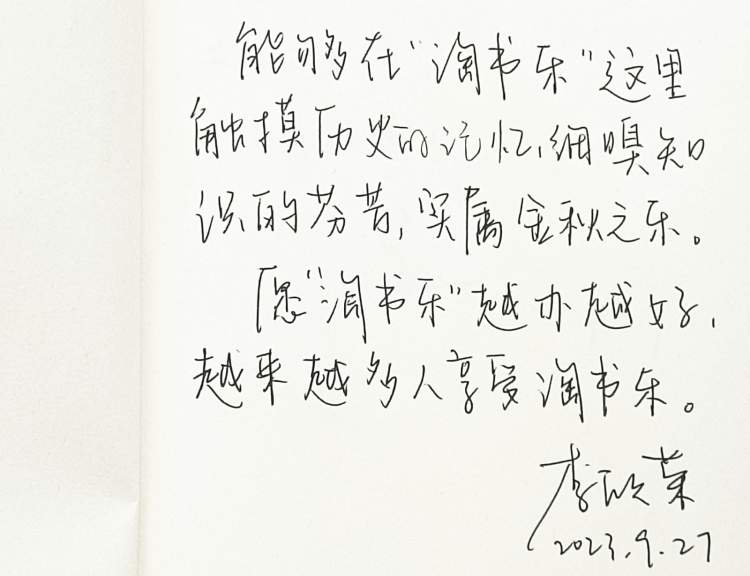 能够在“淘书乐”这里
触摸历史的记忆,细嗅知
识的芬芳,实属金秋之乐。
愿“淘书乐”越办越好,
越来越多人享受淘书乐。
李欣荣
2023.9.27